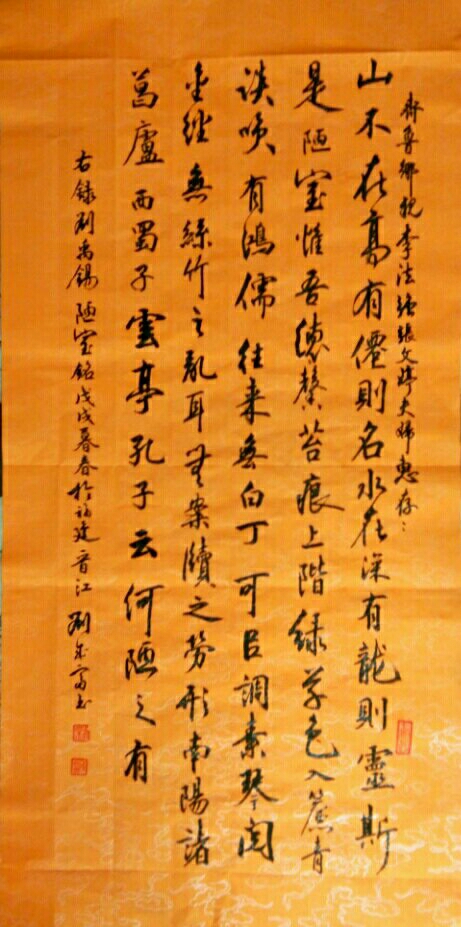 齊魯鄉親李法强張文婷夫婦惠存
山不在高有僊則名水在深有龍則靈斯
是陋室惟吾德馨苔痕上階緑草色入簾青
談咲有鴻儒往来無白丁可㠯調素琴閲
金經無絲竹之亂耳無案牘之勞形南陽諸
葛廬西蜀子雲亭孔子云何陋之有
右録劉禹錫陋室銘戊戌暮春於福建晉江劉富书